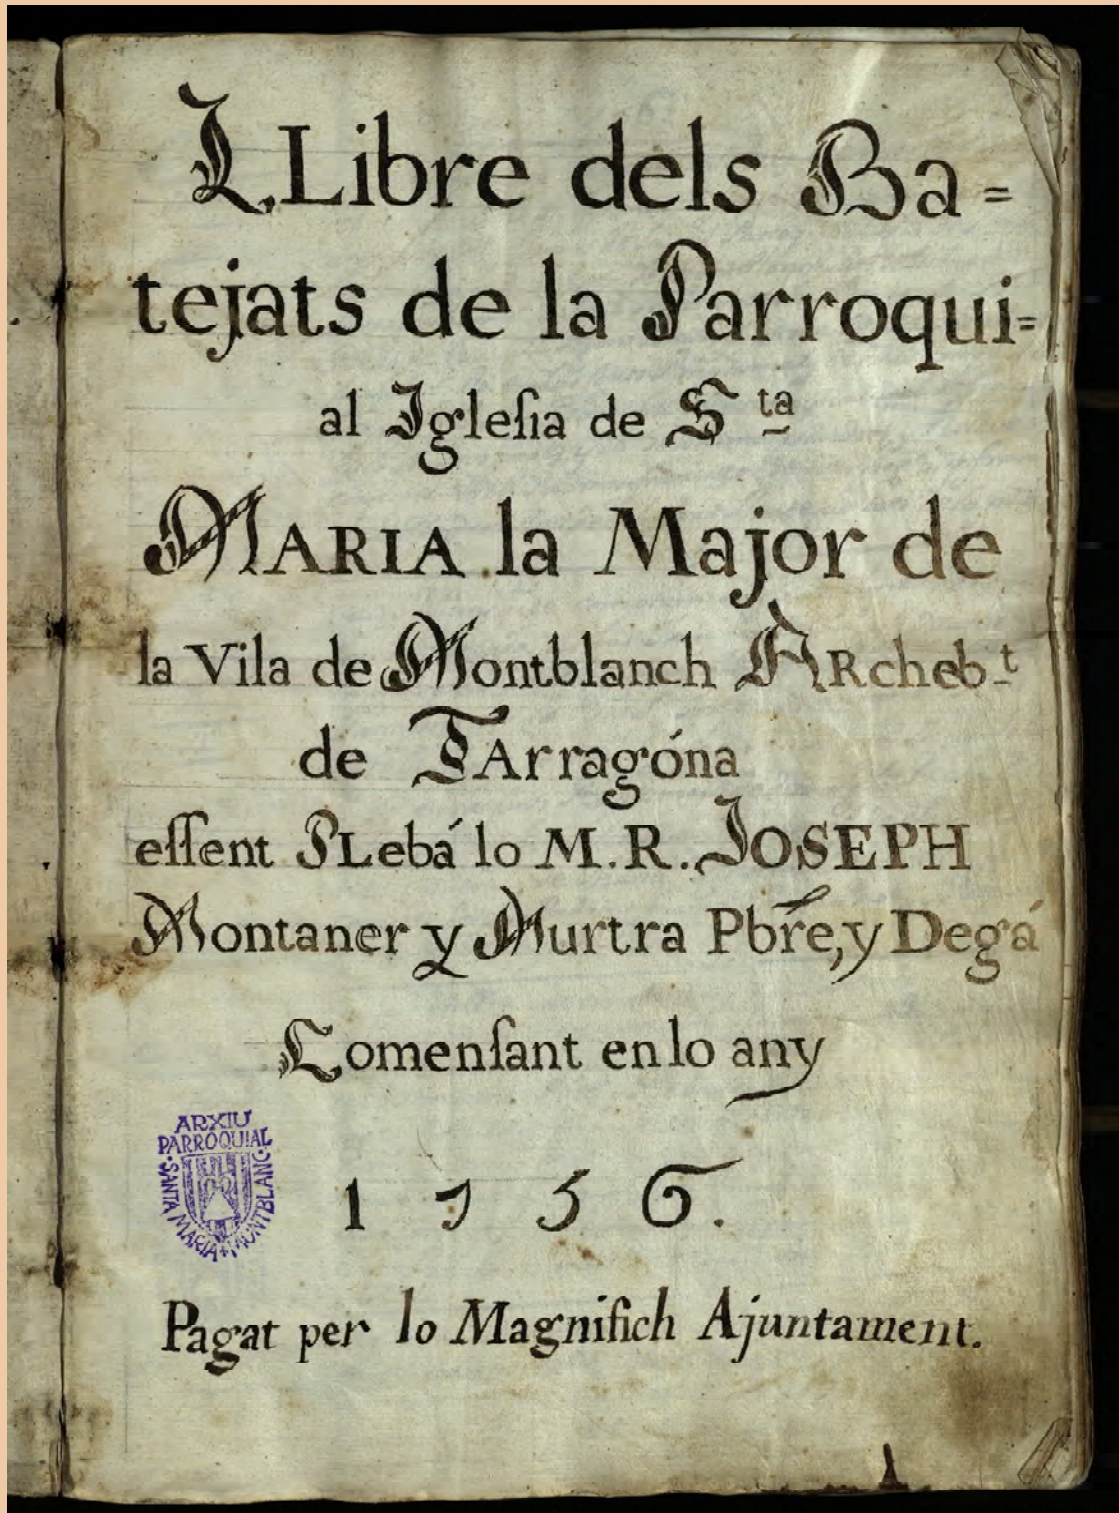 LLibre dels Ba=
tejats de la Parroqui=
al Igleſia de S.ta
MARIA la Major de
la Vila de Montblanch ARcheb.t
de TArragóna
eſſent PLebá lo M.R. JOSEPH
Montaner y Murtra Pbre, y Degá
Comenſant en lo any
1756.
ARXIU
PARROQUIAL
SANTA MARIA MONTBLANC
Pagat per lo Magnifich Ajuntament.